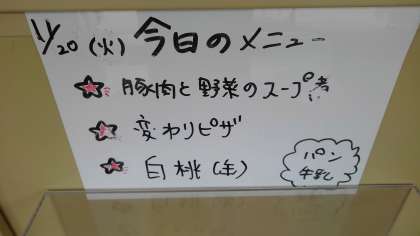 11/20(火) 今日のメニュー
豚肉と野菜のスープ煮
変わりピザ
白桃(缶)
パン
牛乳